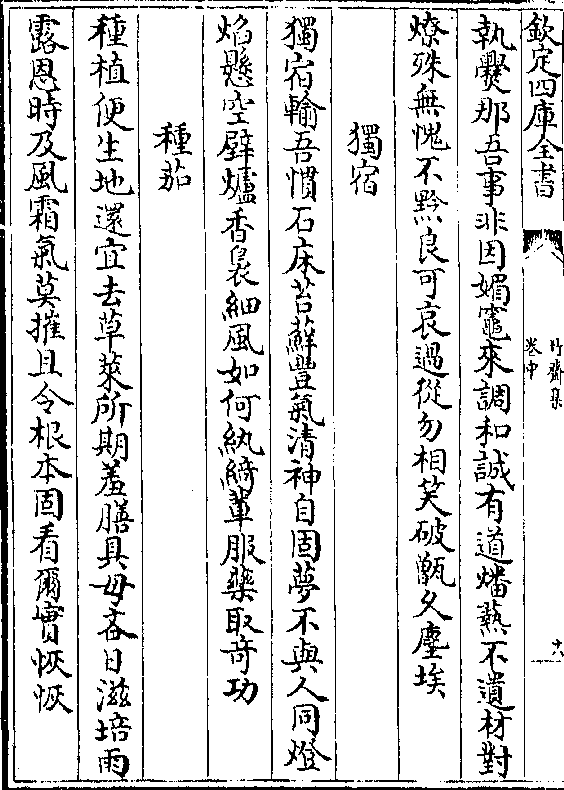 欽定四庫全書
竹齋集
卷中
十六
執爨那吾事非因媚竈來調和誠有道燔爇不遺材對
燎殊無愧不黔良可哀過從勿相笑破甑久塵埃
獨宿
獨宿輸吾慣石床苔蘚豐氣清神自固夢不與人同燈
焰懸空壁爐香裊細風如何紈綺輩服藥取奇功
種茄
種植便生地還宜去草萊所期羞膳具毋吝日滋培雨
露恩時及風霜氣莫摧且令根本固看爾實恢恢